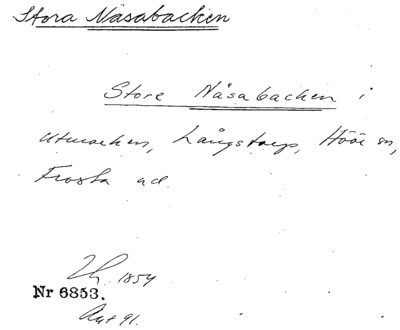 Stora Näsabacken
Store Näsabacken i
Utmarken, Långstorp, Höör sn,
Frosta hd.
1854
Nr 6853.
Akt 91.